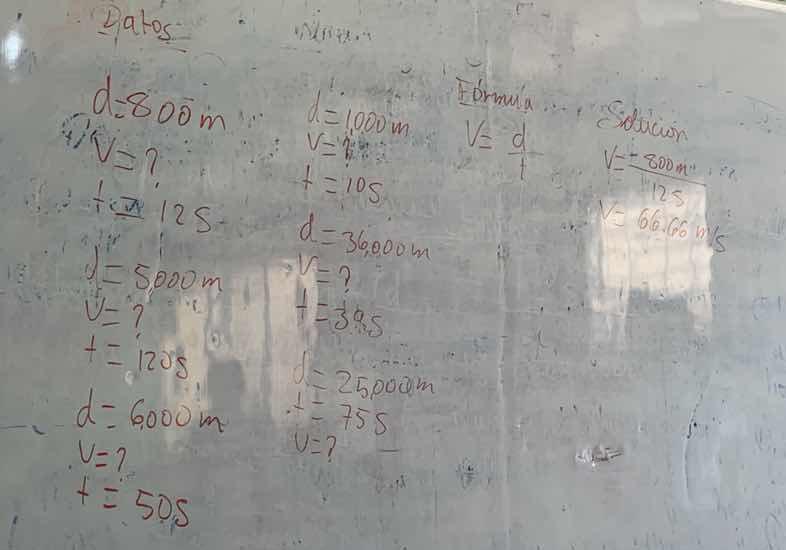 Datos
d=800m
V=?
t= 12s
d= 5,000m
V=?
t= 120s
d= 6,000m
V=?
t= 50s
d=1000m
V=?
t=10s
d=36,000m
V=?
t=39s
d=25,000m
t=75s
V=?
Fórmula
V= d
t
Solución
V= 800m
12s
V= 66.66 m/s